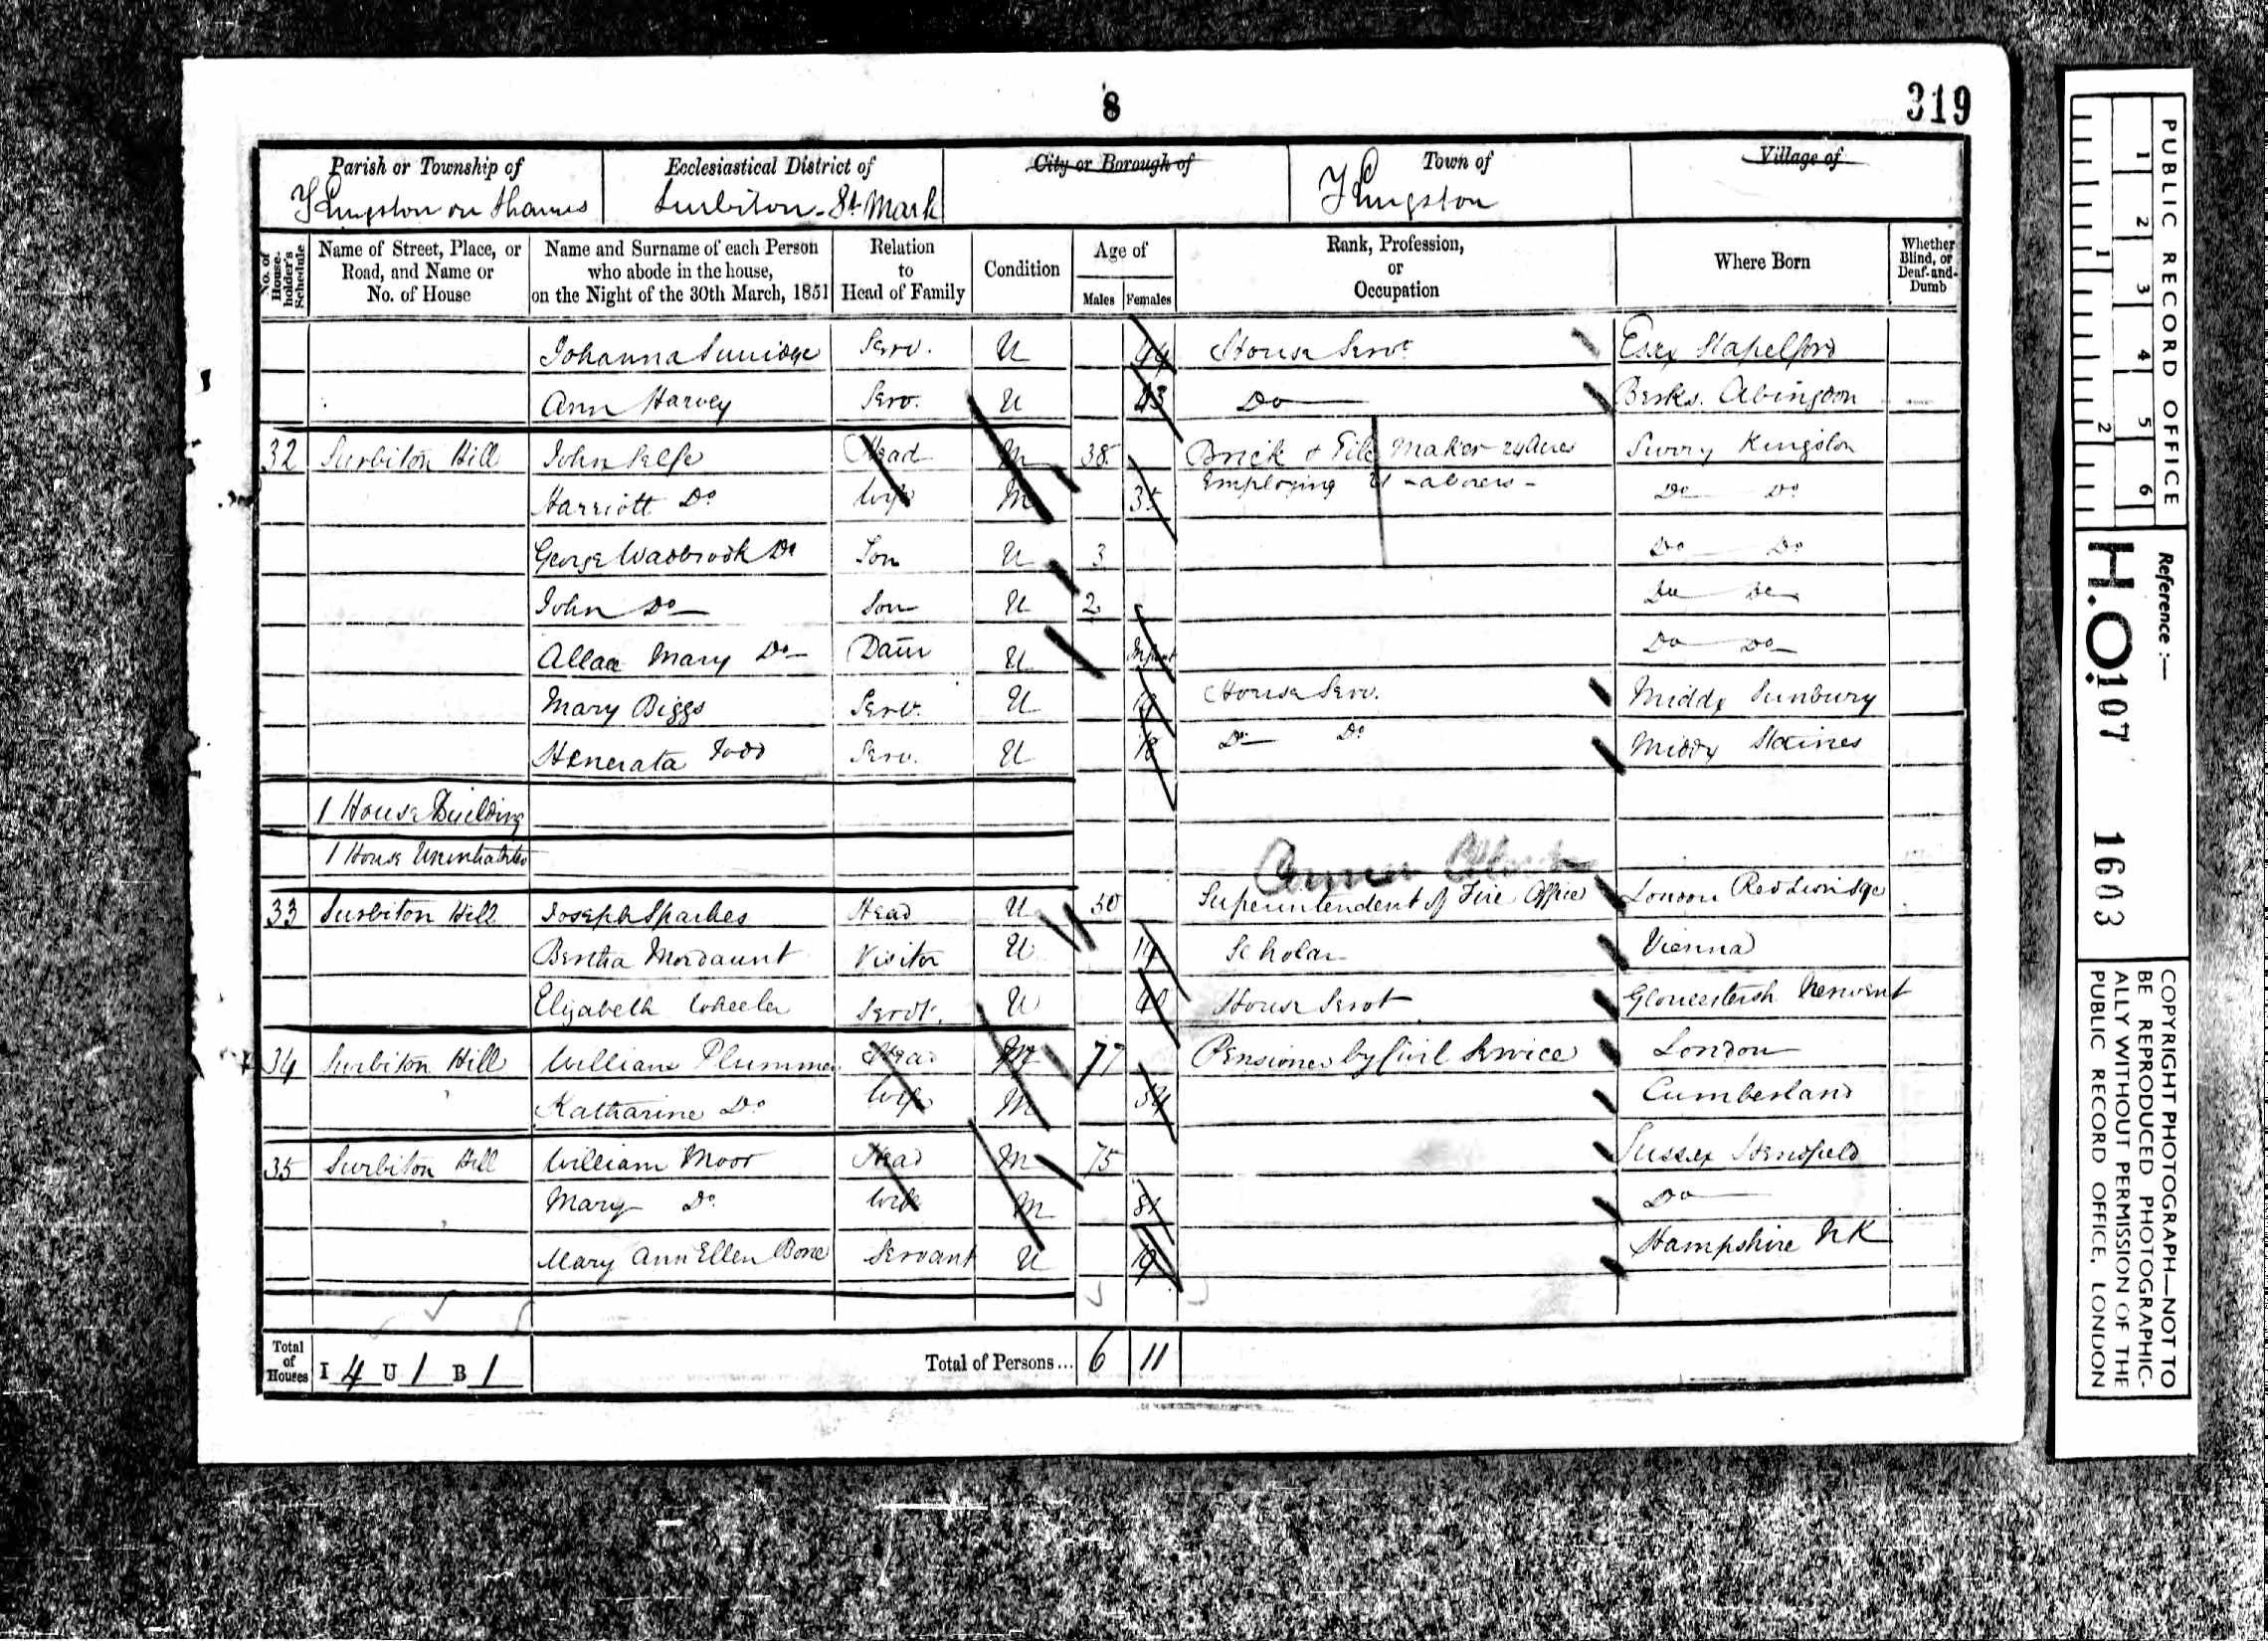 8
319
Parish or Township of
Kingston on Thames
Ecclesiastical District of
Surbiton - St Mark
City or Borough of
Town of
Kingston
Village of
No. of House-holder's Schedule
Name of Street, Place, or Road, and Name or No. of House
Name and Surname of each Person who abode in the house, on the Night of the 30th March, 1851
Relation to Head of Family
Condition
Age of
Males Females
Rank, Profession, or Occupation
Where Born
Whether Blind, or Deaf-and-Dumb
Johanna Serv. U 44 House Servt Essex Stapelford
Ann Harvey Serv. U 23 Do Berks. Abingdon
32 Surbiton Hill John Selfe Head M 38 Brick & Tile Maker 24 Acres Surry Kingston
Harriott Do Wife M 35 Employing Do Do
George Wadbrook Do Son U 3 Do Do
John Do Son U 2 Do Do
Mary Do Daur U Infant Do Do
Mary Biggs Serv. U House Serv. Middx Sunbury
Henerata Todd Serv. U 18 Do Do Middx Staines
1 House Building
1 House Uninhabited
33 Surbiton Hill Joseph Sparkes Head U 50 Superintendent of Fire Office London Red Lion Sqe
Bertha Mordaunt Visitor U 14 Scholar Vienna
Elizabeth Wheeler Servt. U House Servt Gloucestersh Newent
34 Surbiton Hill William Plummer Head M 77 Pensioner by Civil Service London
Katharine Do Wife M 54 Cumberland
35 Surbiton Hill William Moor Head M 75 Sussex Henfield
Mary Do Wife M 81 Do
Mary Ann Ellen Bone Servant U 19 Hampshire NK
Total of Houses I 4 U 1 B 1
Total of Persons... 6 11
PUBLIC RECORD OFFICE
1 2 3 4 5 6
1 2
Reference :—
H.O. 107 1603
COPYRIGHT PHOTOGRAPH—NOT TO
BE REPRODUCED PHOTOGRAPHIC-
ALLY WITHOUT PERMISSION OF THE
PUBLIC RECORD OFFICE, LONDON